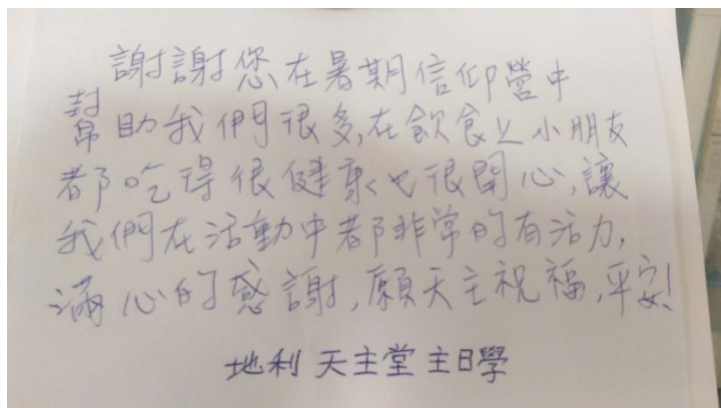 謝謝您在暑期信仰營中
幫助我們很多,在飲食上小朋友
都吃得很健康也很開心,讓
我們在活動中都非常的有活力,
滿心的感謝,願天主祝福,平安!
地利 天主堂 主日學